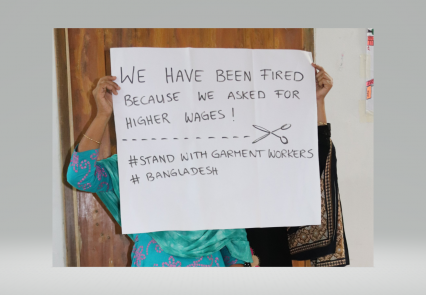 WE HAVE BEEN FIRED
BECAUSE WE ASKED FOR
HIGHER WAGES!
#STAND WITH GARMENT WORKERS
# BANGLADESH